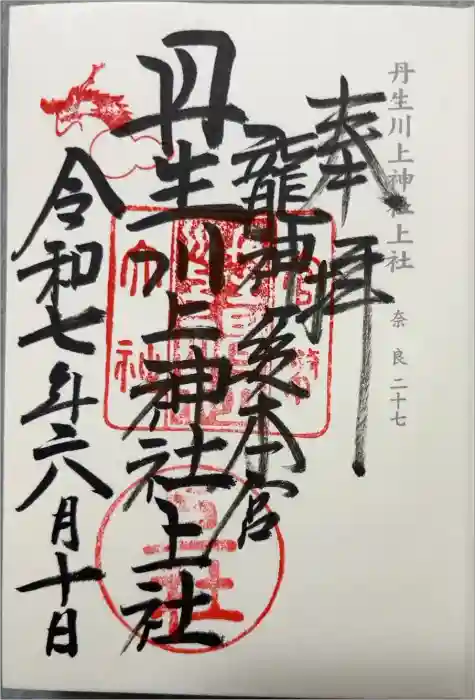 丹生川上神社上社
奈良二十七
奉拝
龍神総本宮
丹生川上神社上社
令和七年六月十日